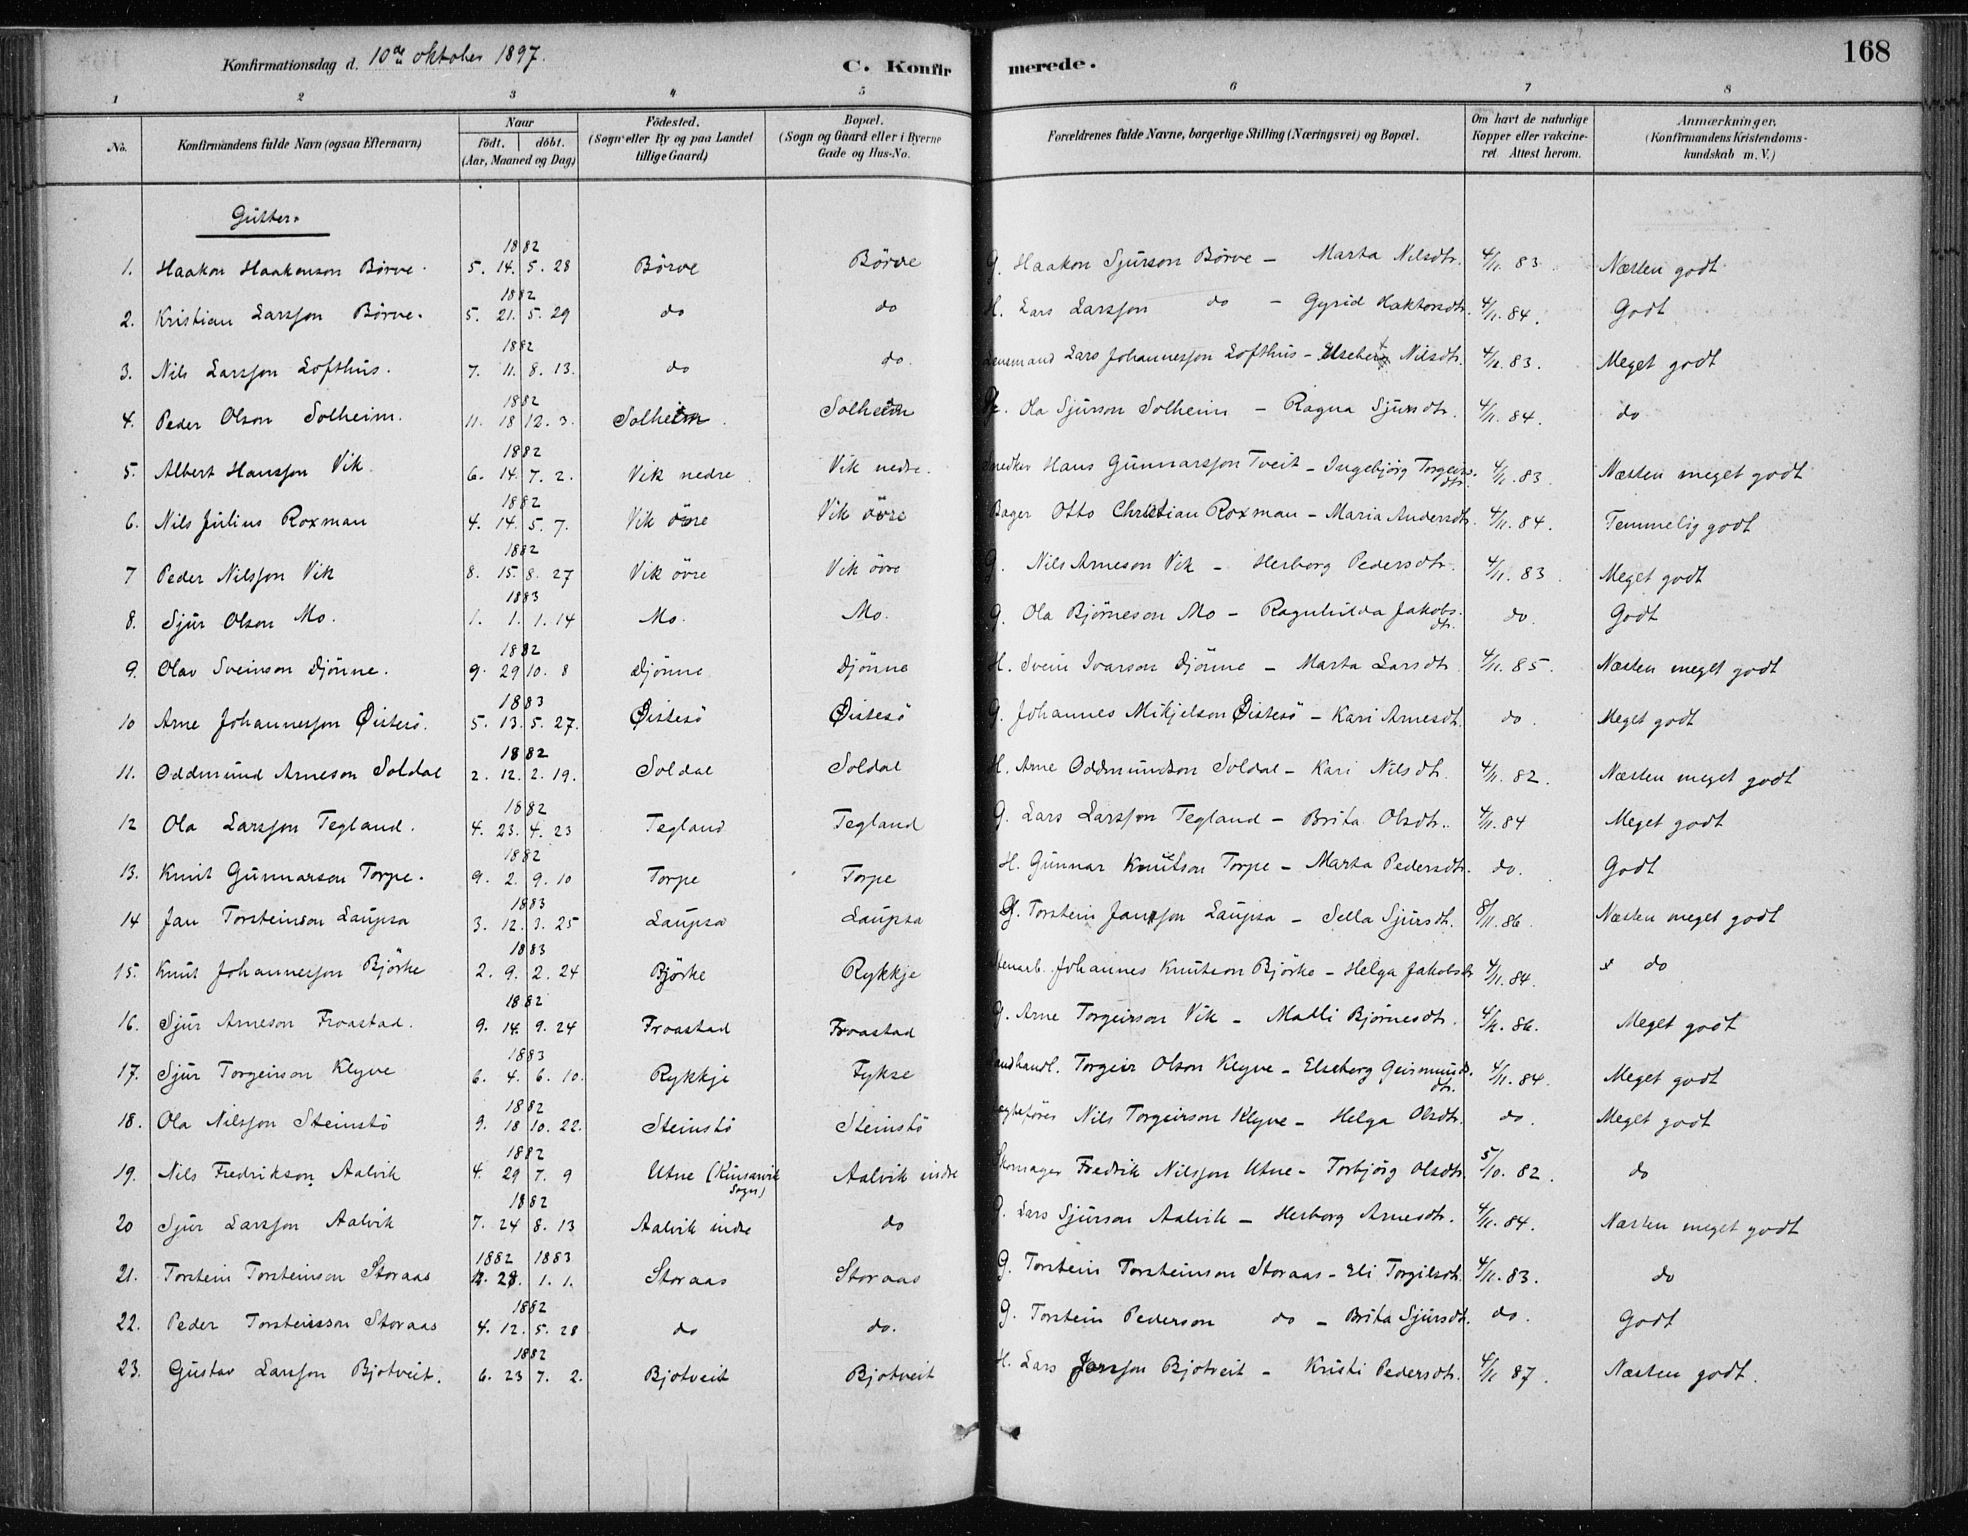 Konfirmationsdag d. 10de oktober 1897.
C. Konfirmerede.
168
1 2 3 4 5 6 7 8
No. | Konfirmandens fulde Navn (ogsaa Efternavn) | Naar født. | døbt. (Aar, Maaned og Dag) | Fødested. (Sogn eller By og paa Landet tillige Gaard) | Bopæl. (Sogn og Gaard eller i Byerne Gade og Hus-No. | Forældrenes fulde Navne, borgerlige Stilling (Næringsvei) og Bopæl. | Om havt de naturlige Kopper eller vaccineret. Attest herom. | Anmærkninger. (Konfirmandens Kristendomskundskab m. V.)
Gutter.
1882
1. Haakon Haakonson Börve. 5. 14. 5. 28 Börve Börve G. Haakon Sjurson Börve – Marta Nilsdtr. 4/11 83. Næsten godt
1882
2. Kristian Larsson Börve. 5. 21. 5. 29 do do H. Lars Larsson do – Gyrid Haktorsdtr. 4/11. 84. Godt
1882
3. Nils Larsson Lofthus. 7. 11. 8. 13. do do. Lensmand Lars Johannesson Lofthus – Nilsdtr. 4/11. 83. Meget godt
1882
4. Peder Olson Solheim. 11. 18 12. 3. Solheim Solheim Ola Sjurson Solheim – Ragna Sjursdtr. 4/11. 84. do
1882
5. Albert Hansson Vik 6. 14. 7. 2. Vik nedre Vik nedre. Snedker Hans Gunnarsson Tveit – Ingebjörg Torgeirsdtr. 4/11. 83. Næsten meget godt
1882
6. Nils Julius Roxman 4. 14. 5. 7. Vik övre Vik övre Bager Otto Christian Roxman – Maria Andersdtr. 4/11. 84. Temmelig godt
1882
7 Peder Nilsson Vik 8. 15. 8. 27 Vik övre Vik övre G. Nils Arneson Vik – Herborg Pedersdtr. 4/11. 83. Meget godt
1883
8. Sjur Olson Mo. 1. 1. 1. 14 Mo. Mo. G. Ola Björneson Mo – Ragnhilda Jakobsdtr. do. Godt
1882
9. Olav Sveinson Djönne. 9. 29 10. 8 Djönne Djönne H. Svein Ivarson Djönne – Marta Larsdtr. 4/11. 85. Næsten meget godt
1883
10 Arne Johannesson Øistesö. 5. 13. 5. 27. Øistesö Øistesö G. Johannes Mikjelson Øistesö – Kari Arnesdtr. do. Meget godt
1882
11. Oddmund Arneson Soldal 2. 12. 2. 19. Soldal Soldal H. Arne Oddmundson Soldal – Kari Nilsdtr. 4/11. 82. Næsten meget godt
1882
12 Ola Larsson Tegland. 4. 23. 4. 23 Tegland Tegland G. Lars Larsson Tegland – Brita Olsdtr. 4/11. 84 Meget godt
1882
13. Knut Gunnarson Torpe. 9. 2. 9. 10 Torpe Torpe H. Gunnar Knutson Torpe – Marta Pedersdtr. do. Godt
1883
14 Jan Torsteinson Laupsa 3. 12. 3. 25 Laupsa Laupsa G. Torstein Jansson Laupsa – Sella Sjursdtr. 8/11. 86. Næsten meget godt
1883
15. Knut Johannesson Björke 2. 9. 2. 24 Björke Rykkje Johannes Knutson Björke – Helga Jakobsdtr 4/11. 84. do
1882
16. Sjur Arneson Froastad. 9. 14. 9. 24 Froastad Froastad G. Arne Torgeirson Vik – Malli Björnesdtr. 4/11. 86. Meget godt
1883
17. Sjur Torgeirson Klyve 6. 4. 6. 10. Rykkje Fykse Landhandl. Torgeir Olson Klyve – Elseborg Geirmundsdtr. 4/11. 84. Meget godt
1882
18. Ola Nilsson Steinstö 9. 18 10. 22. Steinstö Steinstö Nils Torgeirson Klyve – Helga Olsdtr. do. Meget godt
1882
19. Nils Fredrikson Aalvik 4. 29 7. 9 Utne (Kinsarvik Sogn) Aalvik indre Skomager Fredrik Nilsson Utne – Torbjörg Olsdtr. 5/10. 82. do
1882
20 Sjur Larsson Aalvik 7. 24 8. 13 Aalvik indre do G. Lars Sjurson Aalvik – Herborg Arnesdtr. 4/11. 84. Næsten meget godt
1882 1883
21. Torstein Torsteinson Storaas 28. 1. 1. Storaas Storaas G. Torstein Torsteinson Storaas – Eli Torgilsdtr. 4/11. 83. do
1882
22. Peder Torsteinsson Storaas 4. 12. 5. 28 do do. G. Torstein Pederson do – Brita Sjursdtr. do. Godt
1882
23. Gustav Larsson Bjotveit. 6. 23 7. 2. Bjotveit Bjotveit H. Lars Bjotveit – Kristi Pedersdtr. 4/11 87. Næsten godt.